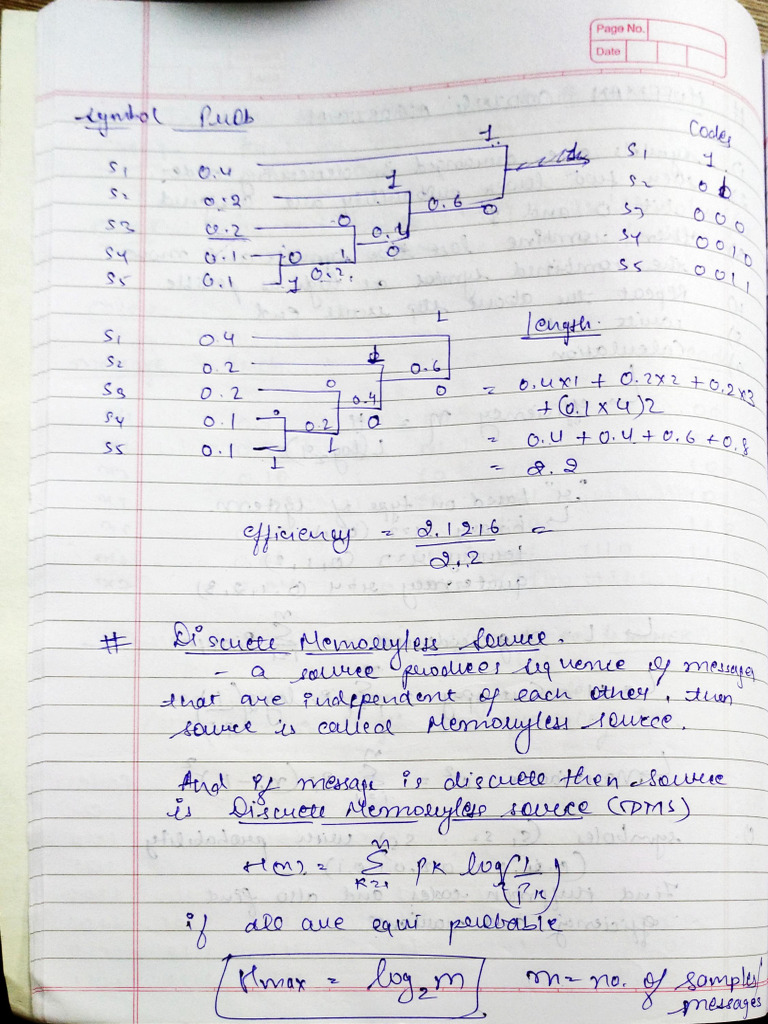 Page No.
Date
Symbol Prob
Codes
S1 0.4 1 S1 1
S2 0.2 1 0.6 0 S2 01
S3 0.2 0 0.4 0 S3 000
S4 0.1 0 1 S4 0010
S5 0.1 1 0.2 S5 0011
S1 0.4 1 length
S2 0.2 1 0.6 0
S3 0.2 0 0.4 0 = 0.4x1 + 0.2x2 + 0.2x3
S4 0.1 0 0.2 1 + (0.1x4)2
S5 0.1 1 = 0.4 + 0.4 + 0.6 + 0.8
= 2.2
efficiency = 2.1216 / 2.2 =
# Discrete Memoryless Source.
- a source produces sequence of messages
that are independent of each other, then
source is called Memoryless source.
And if message is discrete then source
is Discrete Memoryless source (DMS)
H(x) = Σ k=1 n Pk log(1/Pk)
if all are equi probable
Hmax = log2m m = no. of samples/
messages